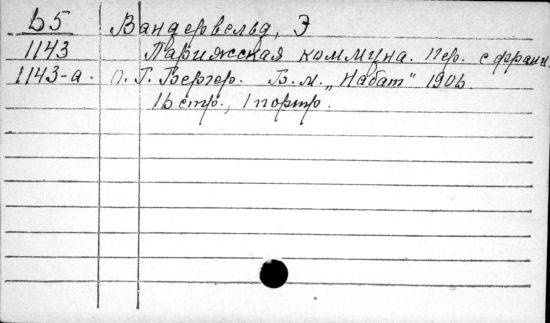 Б5 Вандервельд, Э
1143 Парижская коммуна. Пер. с франц.
1143-а. п. Г. Бергер. Б.м. „Набат" 1906.
16 стр., 1 портр.